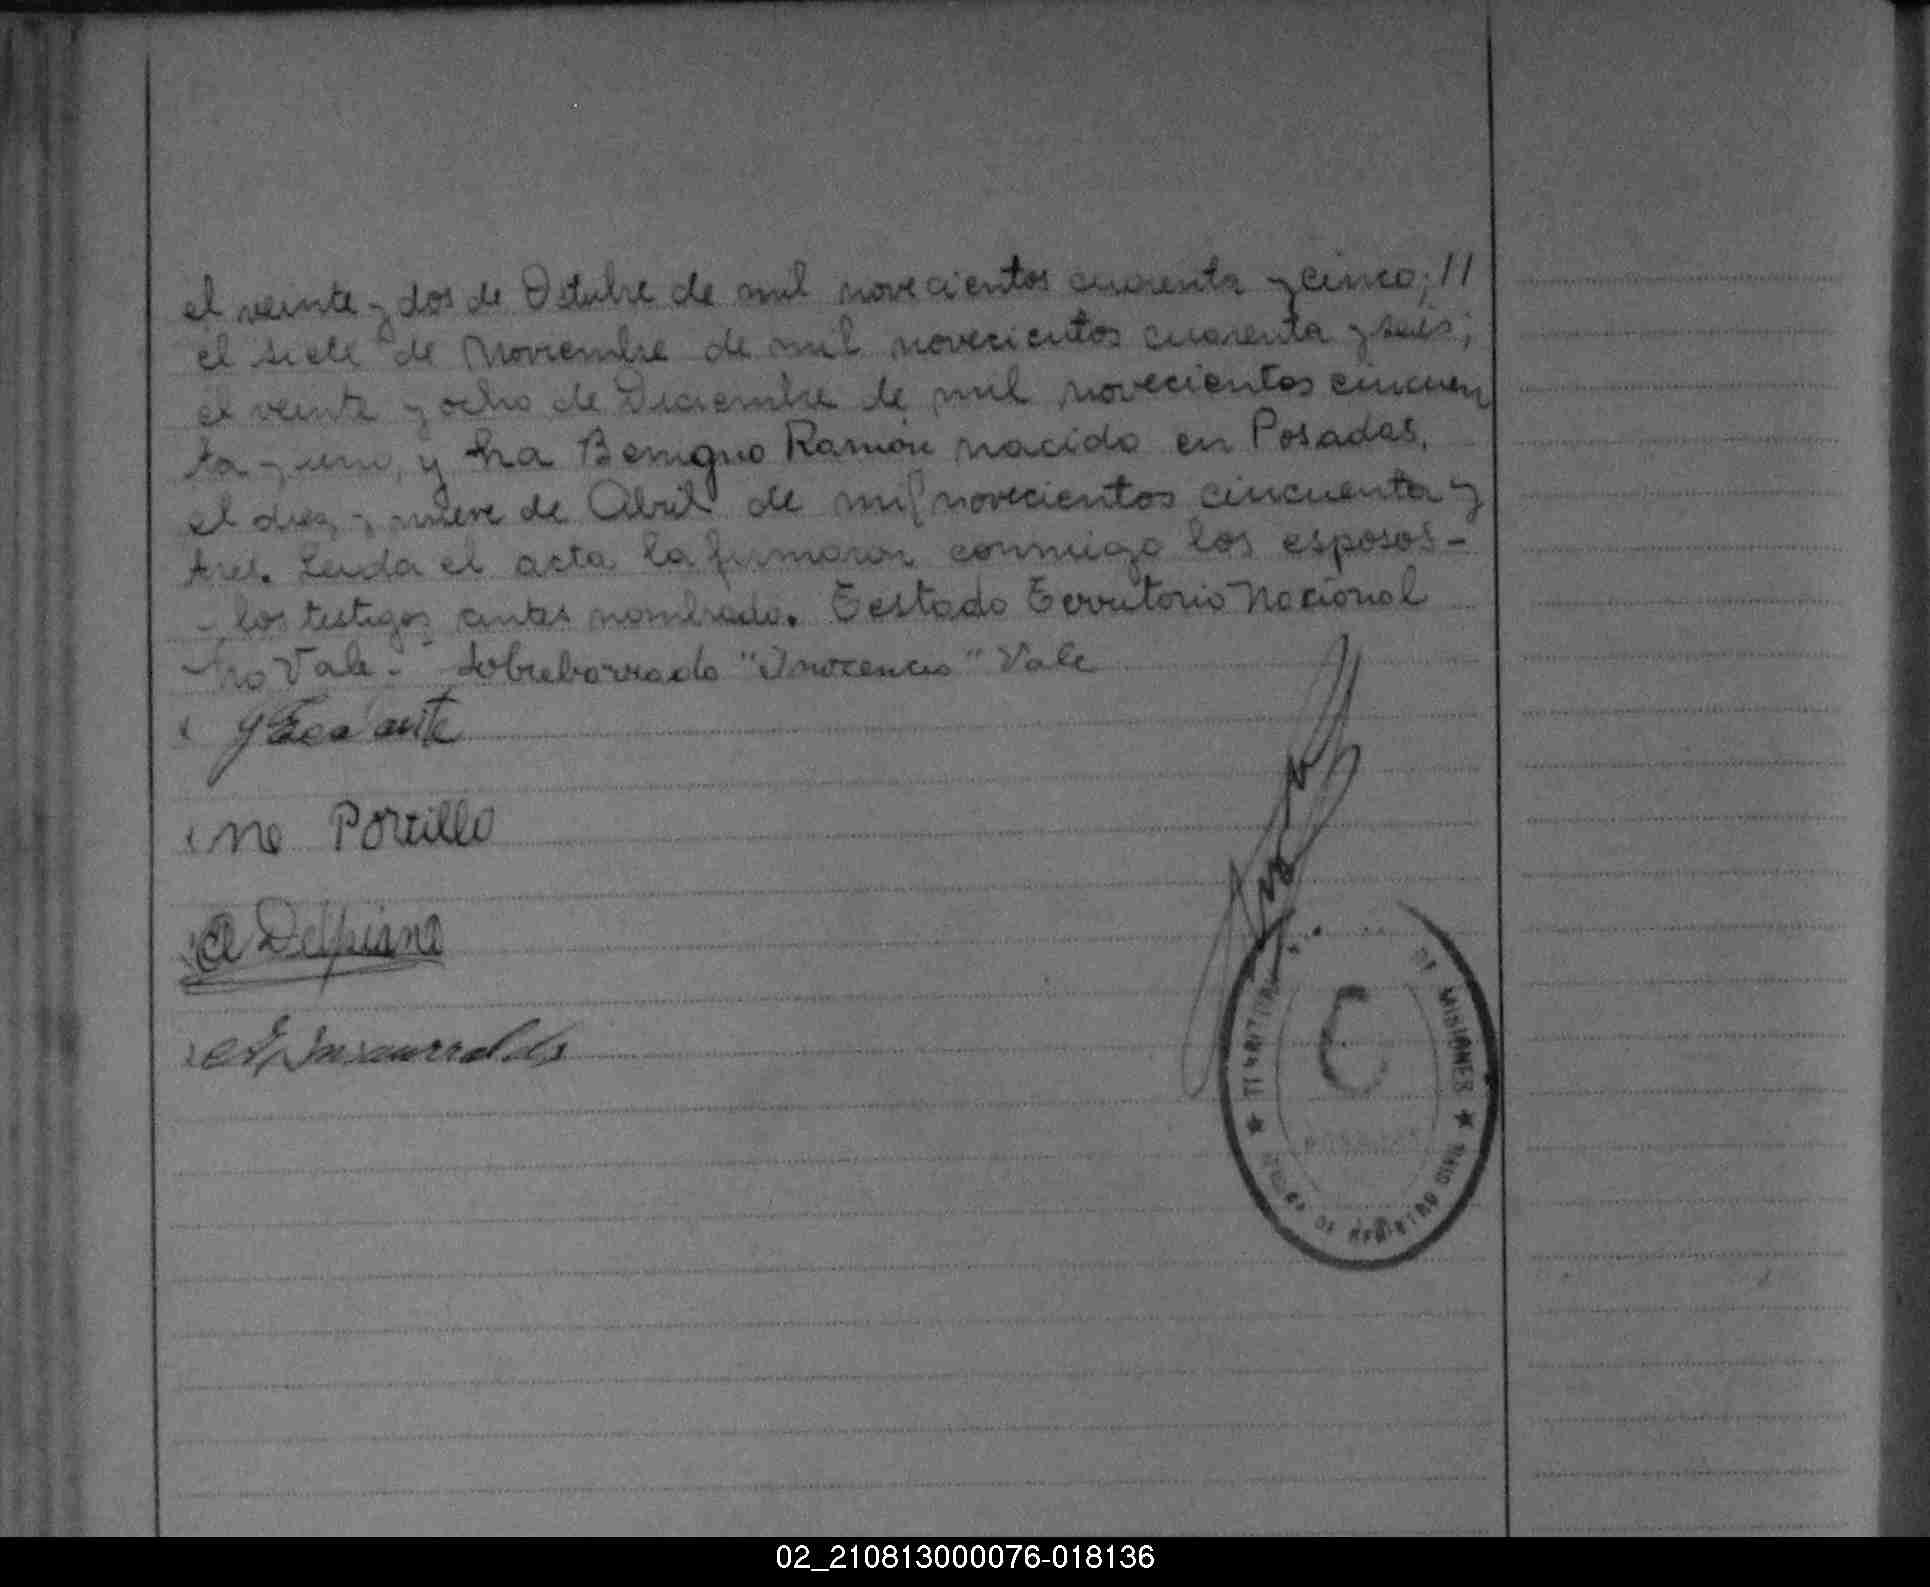 el veinte y dos de Octubre de mil novecientos cuarenta y cinco; //
el siete de Noviembre de mil novecientos cuarenta y seis;
el veinte y ocho de Diciembre de mil novecientos cincuen
ta y uno, y ha Benigno Ramón nacido en Posadas,
el diez y nueve de Abril de mil novecientos cincuenta y
tres. Leida el acta la firmaron conmigo los esposos -
y los testigos antes nombrado. Testado Territorio Nacional
No Vale. - Sobreborrado "Inocencio" Vale
Ne Portillo
A Delpiano
E Insaurralde
TERRITORIO DE MISIONES
C
POSADAS
DE REGISTRO CIVIL
02_210813000076-018136